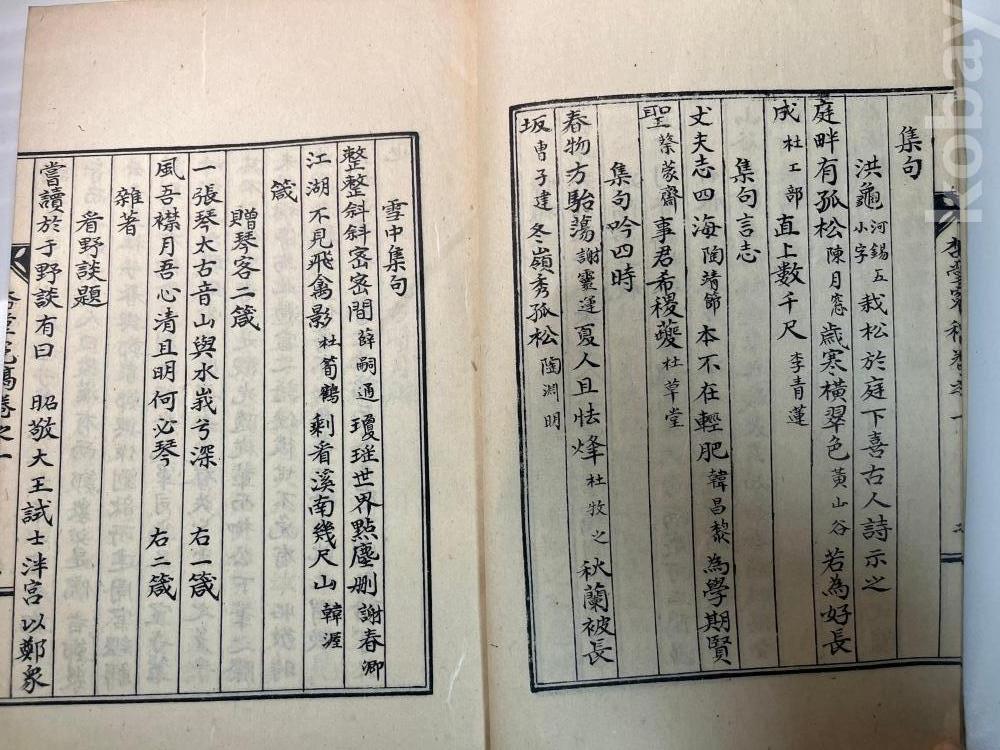 集句
洪龜河錫五小字栽松於庭下喜古人詩示之
庭畔有孤松陳月窓歲寒橫翠色黃山谷若為好長
成杜工部直上數千尺李青蓮
集句言志
丈夫志四海陶靖節本不在輕肥韓昌黎為學期賢
聖蔡蒙齋事君希稷夔杜草堂
集句吟四時
春物方駘蕩謝靈運夏人且怯烽杜牧之秋蘭被長
坂曹子建冬嶺秀孤松陶淵明
雪中集句
整整斜斜密密間薛嗣通瓊瑤世界點塵刪謝春卿
江湖不見飛禽影杜荀鶴剩看溪南幾尺山韓渥
箴
贈琴客二箴
一張琴太古音山與水峩兮深 右一箴
風吾襟月吾心清且明何必琴 右二箴
雜著
看野談題
嘗讀於于野談有曰 昭敬大王試士泮宮以鄭象
稿卷之一
kobay